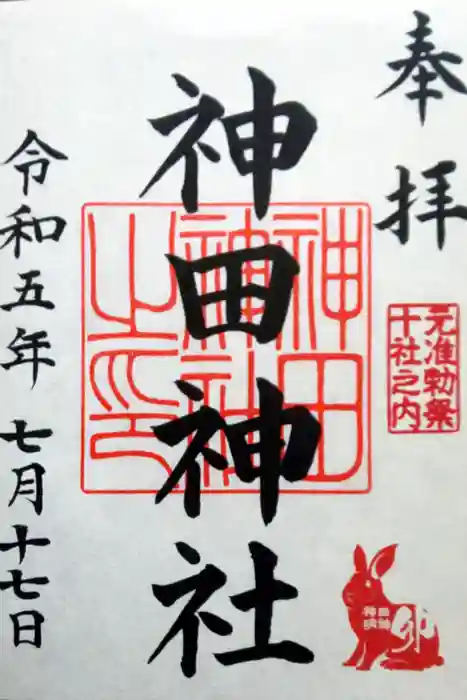 奉拝
元准勅祭
十社之内
神田神社
神田
神社
之印
卯
令和五年七月十七日